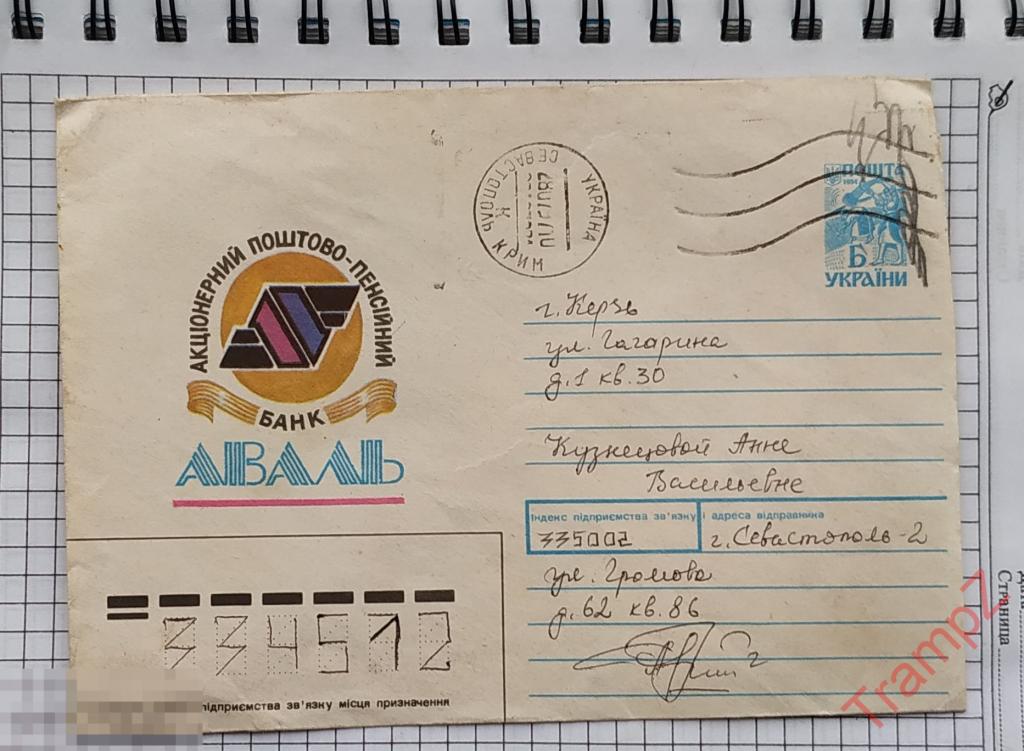 АКЦІОНЕРНИЙ ПОШТОВО-ПЕНСІЙНИЙ
БАНК
АВАЛЬ
УКРАЇНА
СЕВАСТОПОЛЬ
К
КРИМ
ПОШТА
1994
Б
УКРАЇНИ
г. Керчь
ул. Гагарина
д. 1 кв. 30
Кузнецовой Анне
Васильевне
Індекс підприємства зв'язку і адреса відправника
335002 г. Севастополь-2
ул. Громова
д. 62 кв. 86
334512
підприємства зв'язку місця призначення
Страница
TrampZ